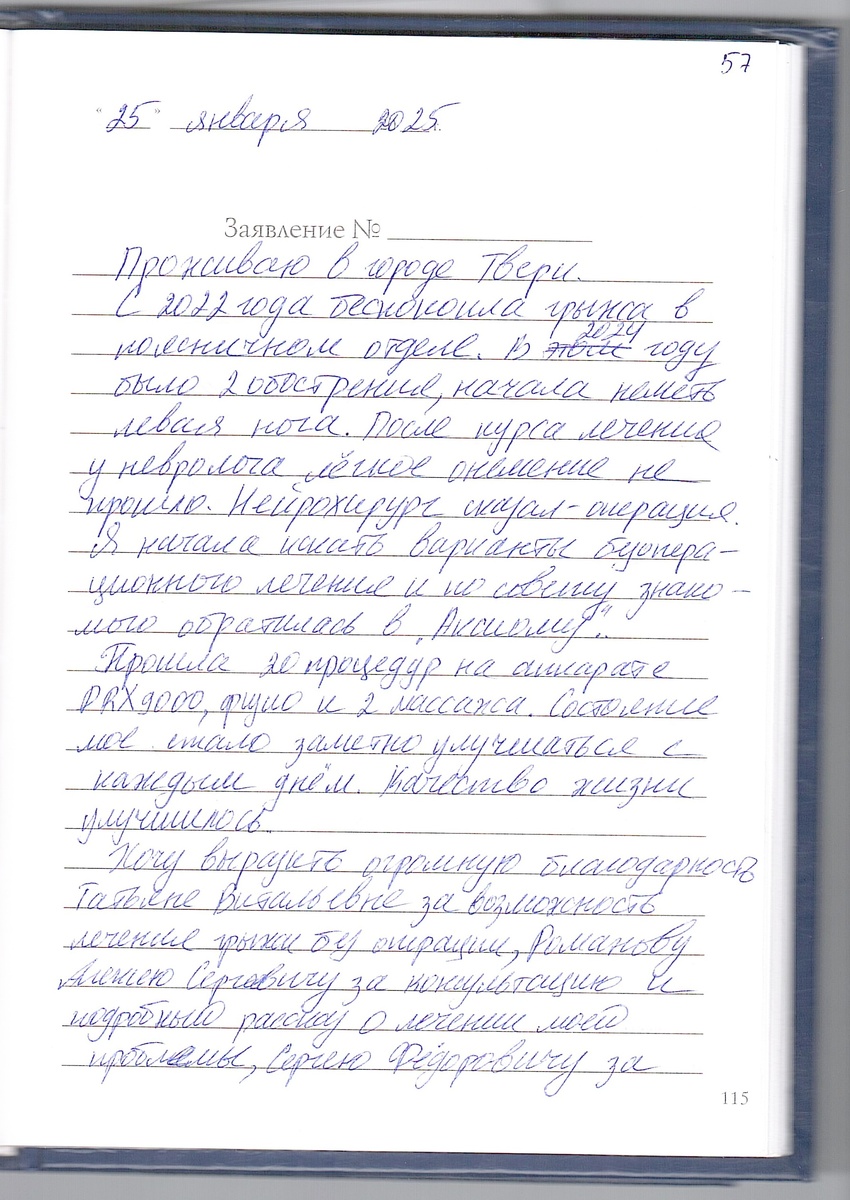 57
"25" января 2025.
Заявление №
Проживаю в городе Твери.
С 2022 года беспокоила грыжа в
поясничном отделе. В этом 2024 году
было 2 обострения, начала неметь
левая нога. После курса лечения
у невролога лёгкое онемение не
прошло. Нейрохирург сказал - операция.
Я начала искать варианты безопера-
ционного лечения и по совету знако-
мого обратилась в "Аксиому".
Прошла 20 процедур на аппарате
DRX9000, физио и 2 массажа. Состояние
мое стало заметно улучшаться с
каждым днём. Качество жизни
улучшилось.
Хочу выразить огромную благодарность
Татьяне Витальевне за возможность
лечения грыжи без операции, Романову
Алексею Сергеевичу за консультацию и
подробный рассказ о лечении моей
проблемы, Сергею Фёдоровичу за
115